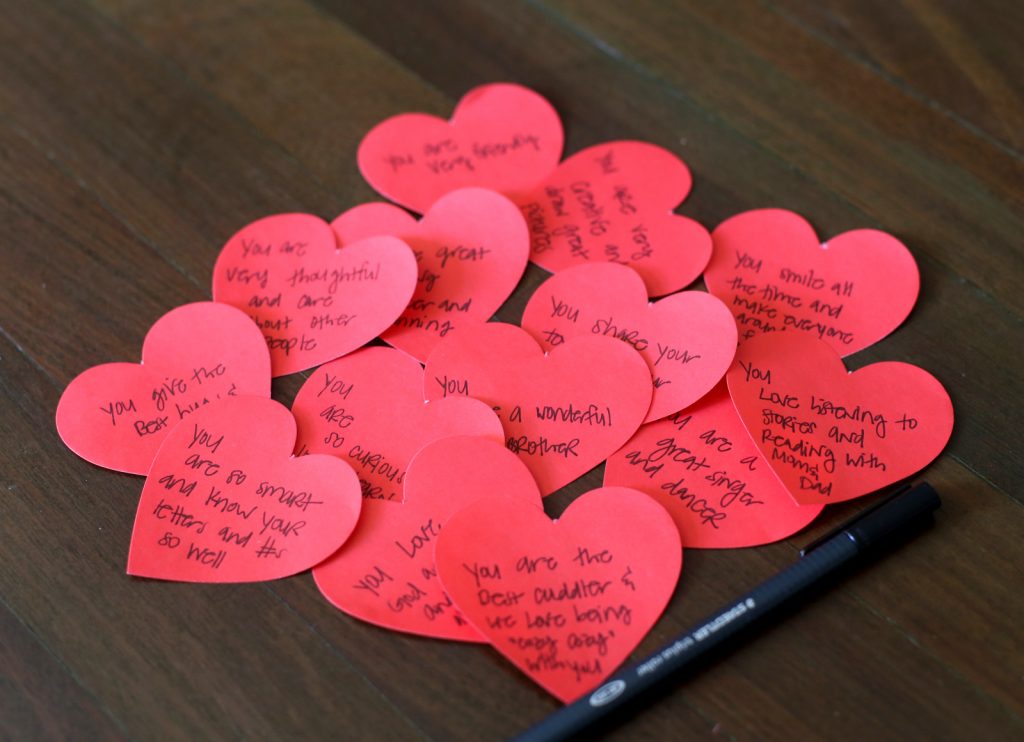 You are
very friendly
You are very
creative and
draw great
pictures
You are
very thoughtful
and care
about other
people
great
and
You smile all
the time and
make everyone
You share your
You give the
Best
You
are
so curious
You
a wonderful
BROTHER
You
Love listening to
stories and
Reading with
Mom &
Dad
You are a
great singer
and dancer
You
are so smart
and know your
letters and #s
so well
You Love
God
You are the
best cuddler &
we love being
"cozy cozy"
with you
STAEDTLER triplus roller